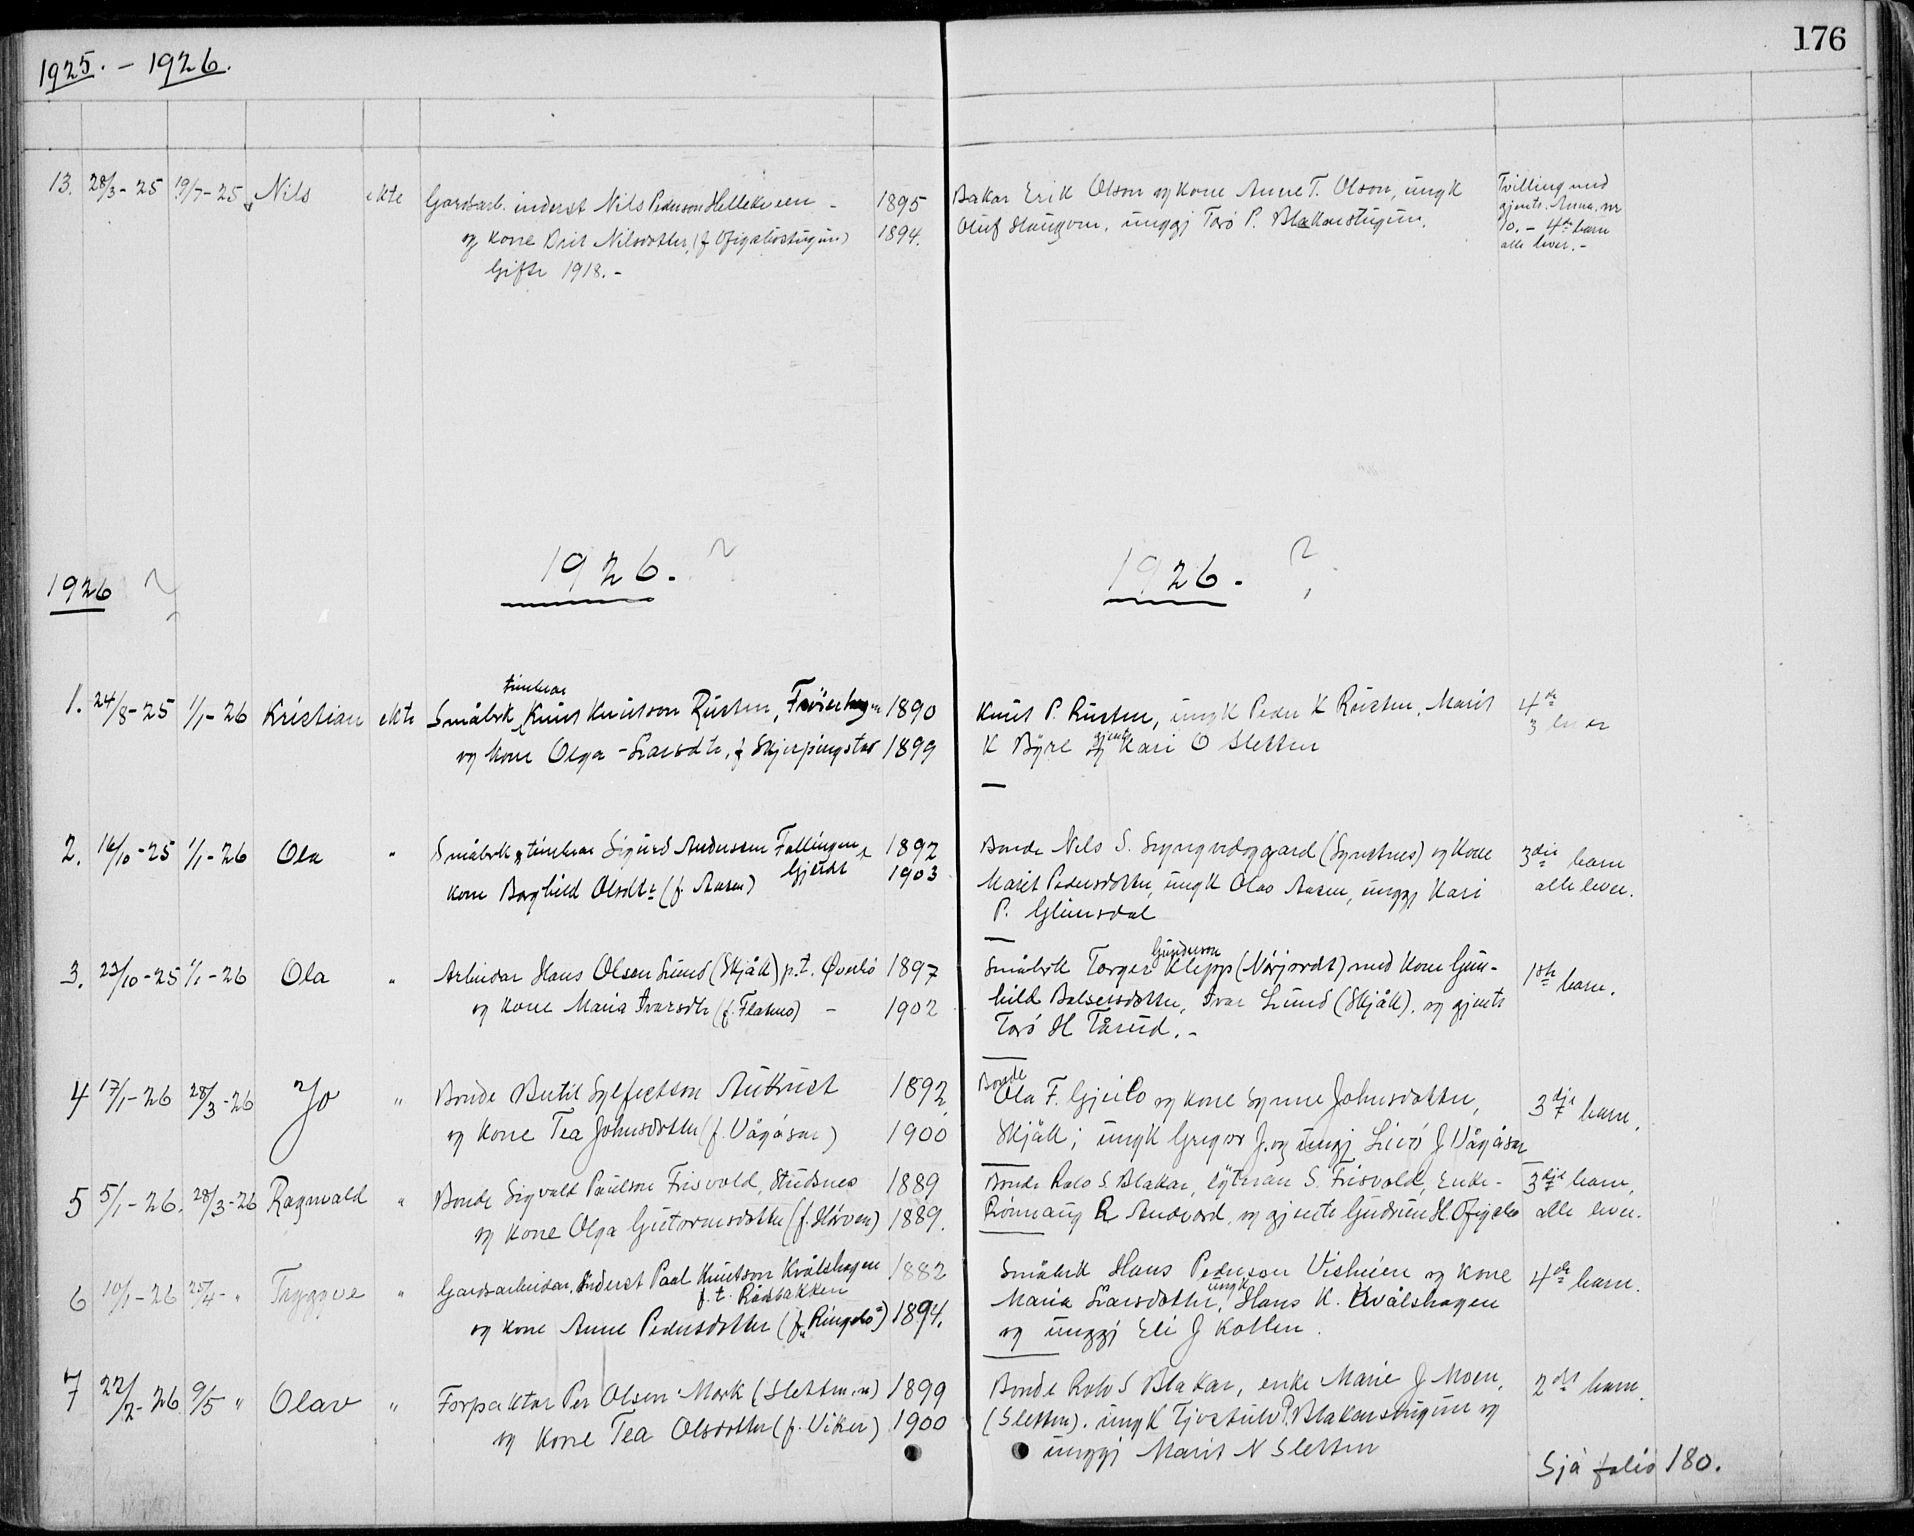 1925. - 1926.
176
13. 28/3-25 19/7-25 Nils ekte Gardsarb. inderst Nils Pederson Hellekveen - 1895 Bakar Erik Olson og kone Anne T. Olson, ungk Tvilling med
og kone Brit Nilsdotter (f Ofigsbostugun) 1894. Oluf Haugom, unggj Torö P. Blakarstugun. gjente. Anna, nr
Gifte 1918. - 10. - 4de barn
alle lever. -
1926 1926. ? 1926. ?
timbrar
1. 24/8-25 1/1-26 Kristian ekte Småbrk Knut Knutson Rusten, 1890 Knut P. Rusten, ungk Peder K Rusten, Marit 4de
og kone Olga Larsdtr, f Skjerpingstad 1899 K Byre gjente Kari O Sletten 3 lever
2. 16/10-25 1/1-26 Ola " Småbrk & timbrar Sigurd Anderssen Fallingen 1892 Bonde Nils S. (Synstnes) og kone 3die barn
kone Borghild Olsdtr (f. Aasen) Gjeidt 1903 Marit Pedersdotter, ungk Olav Aasen, unggj Kari alle lever.
P. Glimsdal
3. 23/10-25 1/1-26 Ola " Arbeidar Hans Olsen Lund (Skjåk) p.t. Øvrebö 1897 Småbrk Torger Gunderson Klepp (Norjordet) med kone Gun- 1ste barn.
og kone Maria Ivarsdtr (f. Flatmo) - 1902 hild Balsersdotter, Ivar Lund (Skjåk). og gjente
Torö H Tårud. -
4 17/1-26 28/3-26 Jo " Bonde Bertil Sylfestson Aukrust 1892, Bonde Ola F. Gjeilo og kone Synne Johnsdotter, 3dje barn.
og kone Tea Johnsdotter (f. Vågåsar) 1900 Skjåk; ungk Gregor J. og ungj Livö J Vågåsar
5 5/1-26. 28/3-26 Ragnvald " Bonde Sigvald Paulson Frisvold, Studsnes 1889 Bonde Rolv S. Blakar, löytnan S. Frisvold, Enke- 3dje barn,
og kone Olga Guttormsdotter (f. Hörven) 1889. Rönnaug R Andvord, og gjente Gudrun H. Ofigsbo alle lever.
6 10/1-26 25/4- " Tryggve " Gardsarbeidar, inderst Paal Knutson Kvålshagen 1882 Småbrk Hans Pederson Visheien og kone 4de barn.
f. t. Rådbakken
og kone Anne Pedersdotter (f. "Ringebo") 1894. Maria Larsdotter, ungk Hans K. Kvålshagen
og unggj Eli J Kollen.
7 22/2-26 9/5 " Olav " Forpaktar Per Olsen Mork (Sletten.n) 1899 Bonde Rolv S Blakar, enke Marie J Moen, 2det barn.
og kone Tea Olsdotter (f. Viken) 1900 (Sletten). ungk Tjostulv P. Blakarstugun og
unggj Marit N Sletten
Sjå folio 180.